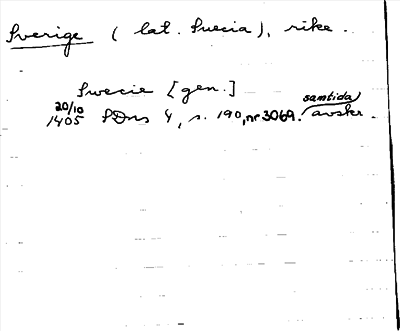 Sverige (lat. Suecia), rike.
Swecie [gen.]
20/10 1405 SDns 4, s. 190, nr 3069. samtida avskr.